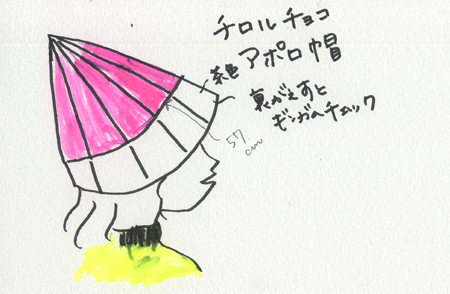 チロルチョコ
茶色アポロ帽
裏がえすと
ギンガムチェック
57
cm